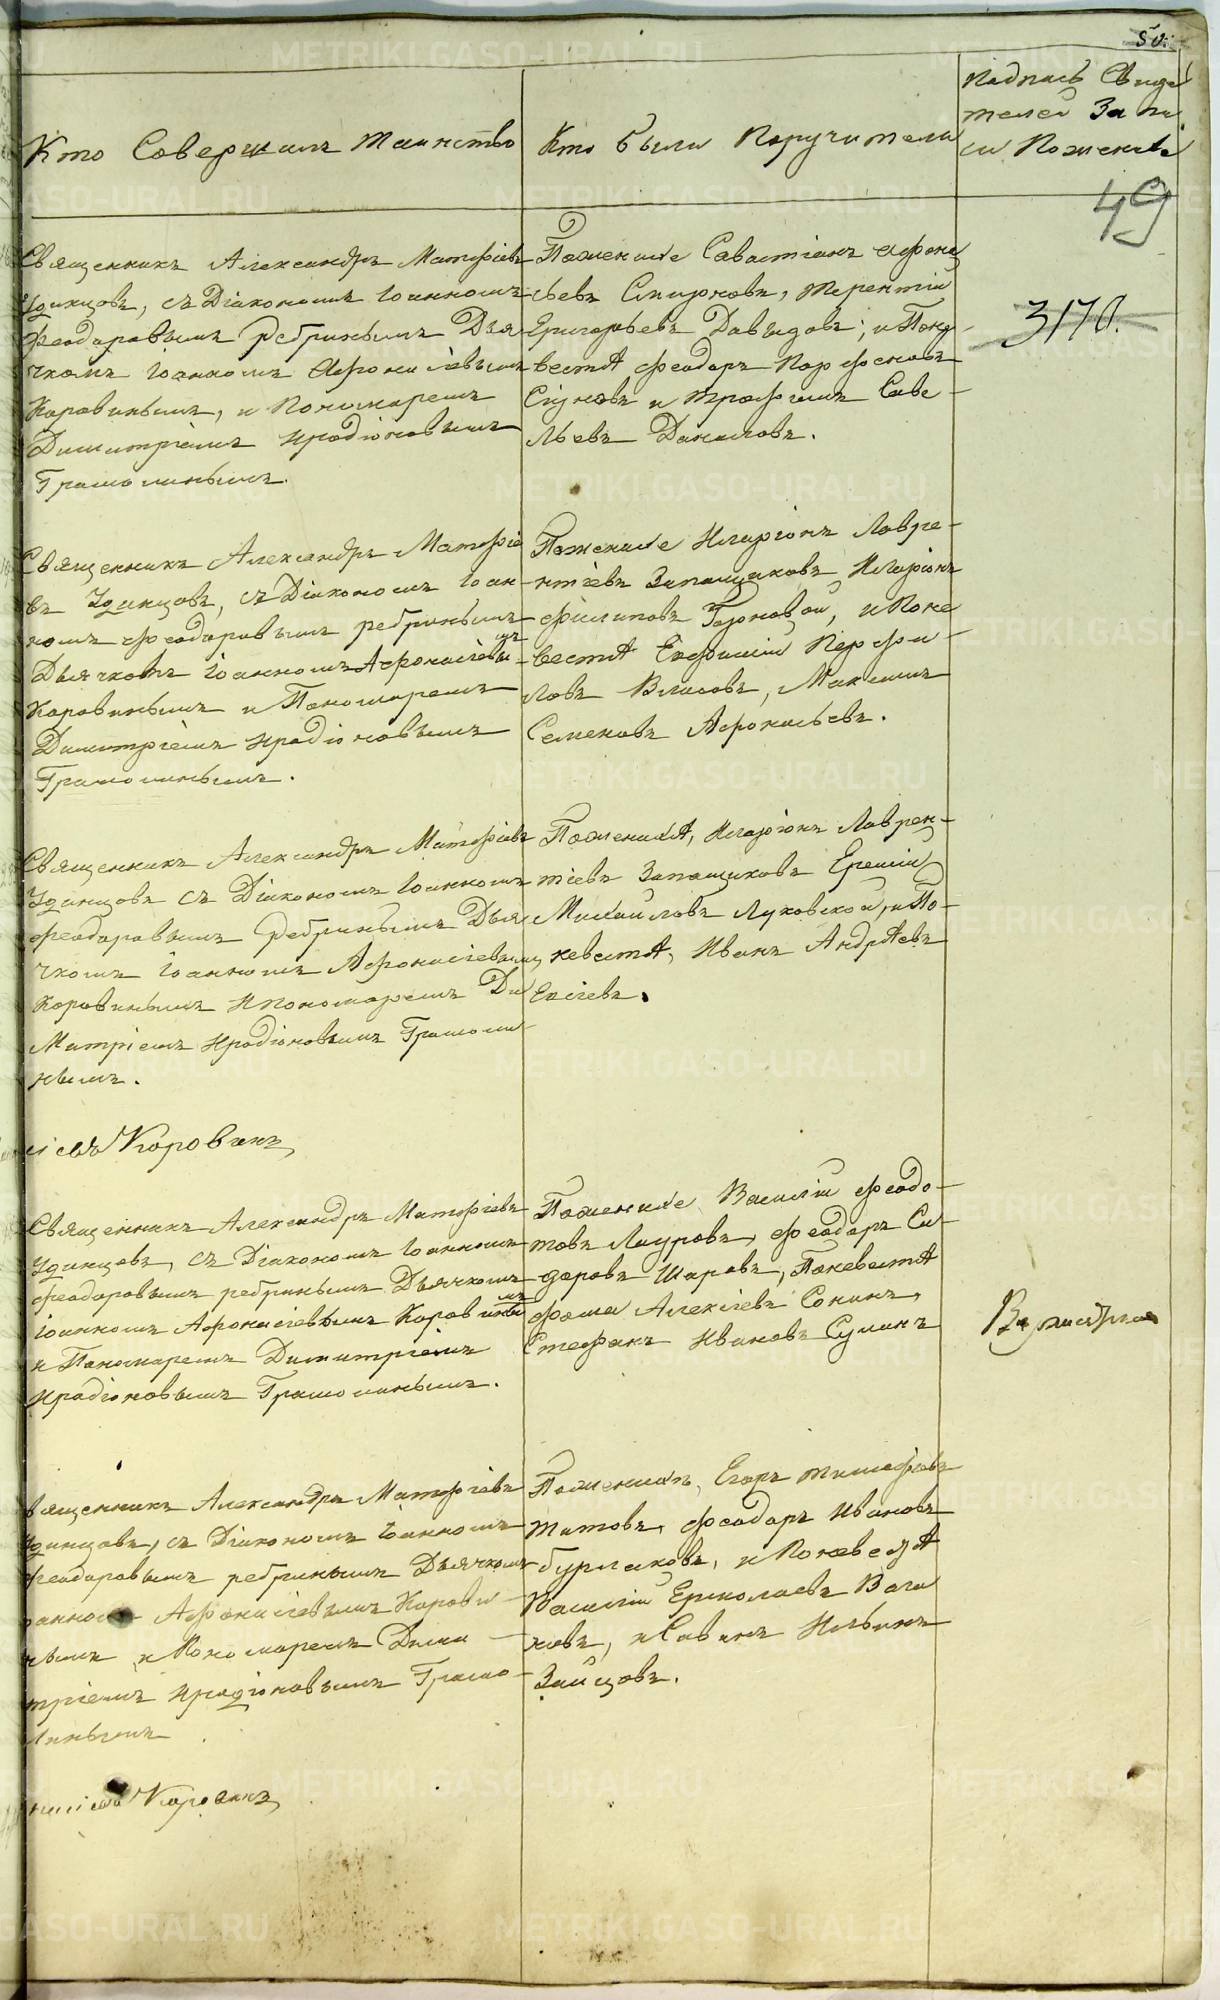 50.
Кто Совершалъ таинство
Кто были Поручители
Подпись Свиде
телей Запи
си Пожелай
49
3170.
Священникъ Александръ Матфіевъ
Удинцовъ, съ Діакономъ Іоанномъ
Феодоровымъ Ребринымъ Дья
чкомъ Іоанномъ Афонасіевымъ
Коровинымъ, и Пономаремъ
Димитріемъ Иродіоновымъ
Грамолинымъ.
По женихѣ Савастіанъ Афона
сьевъ Смирновъ, терентій
Григорьевъ Давыдовъ; и По не
вестѣ Феодоръ Парфеновъ
и Трофимъ Саве
льевъ Даниловъ.
Священникъ Александръ Матфіе
въ Удинцовъ, съ Діакономъ Іоан
номъ Феодоровымъ ребринымъ
Дьячкомъ Іоанномъ Афонасіевымъ
Коровинымъ и Пономаремъ
Димитріемъ Иродіоновымъ
Грамолинымъ.
По женихе Иларіонъ Лавре
нтіевъ Запащиковъ Иларіонъ
Филиповъ Горновой, и По не
вестѣ Евфимій Перфи
ловъ Власовъ, Максимъ
Семеновъ Афонасьевъ.
Священникъ Александръ Матфіевъ
Удинцовъ съ Діакономъ Іоанномъ
Феодоровымъ Ребринымъ Дья
чкомъ Іоанномъ Афонасіевымъ
Коровинымъ И пономаремъ Ди
Митріемъ Иродіоновымъ Грамоли
нымъ.
По женихѣ, Иларіонъ Лаврен
тіевъ Запащиковъ Еремій
Михайловъ Луховской, и По
невестѣ, Иванъ Андрѣевъ
Евсіевъ.
сіевъ Коровинъ
Священникъ Александръ Матфіевъ
Удинцовъ, съ Діакономъ Іоанномъ
Феодоровымъ ребринымъ Дьячкомъ
Іоанномъ Афонасіевымъ Коровинымъ
и Пономаремъ Димитріемъ
Иродіоновымъ Грамолинымъ.
По женихе Василій Феодо
товъ Лауровъ, Феодоръ Си
доровъ Шаровъ, По невестѣ
Фома Алексіевъ Сонинъ,
Стефанъ Ивановъ Сулинъ
вященникъ Александръ Матфіевъ
Удинцовъ, съ Діакономъ Іоанномъ
Феодоровымъ ребринымъ Дьячкомъ
Іоанномъ Афонасіевымъ Корови
нымъ и Пономаремъ Дими
тріемъ Иродіоновымъ Грамо
линымъ
По женихѣ, Егоръ тимофіевъ
титовъ, Феодоръ Ивановъ
бурлаковъ, и По невестѣ
Василій Ермолаевъ Вага
новъ, и Савинъ Ильинъ
Зайцовъ.
насіевъ Коровинъ
METRIKI.GASO-URAL.RU